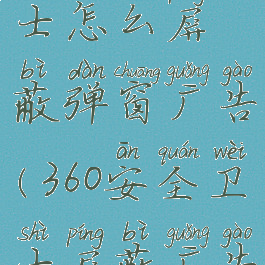 士怎么屏
bì dàn chuāng guǎng gào
蔽弹窗广告
ān quán wèi
(360安全卫
shì píng bì guǎng gào
士屏蔽广告